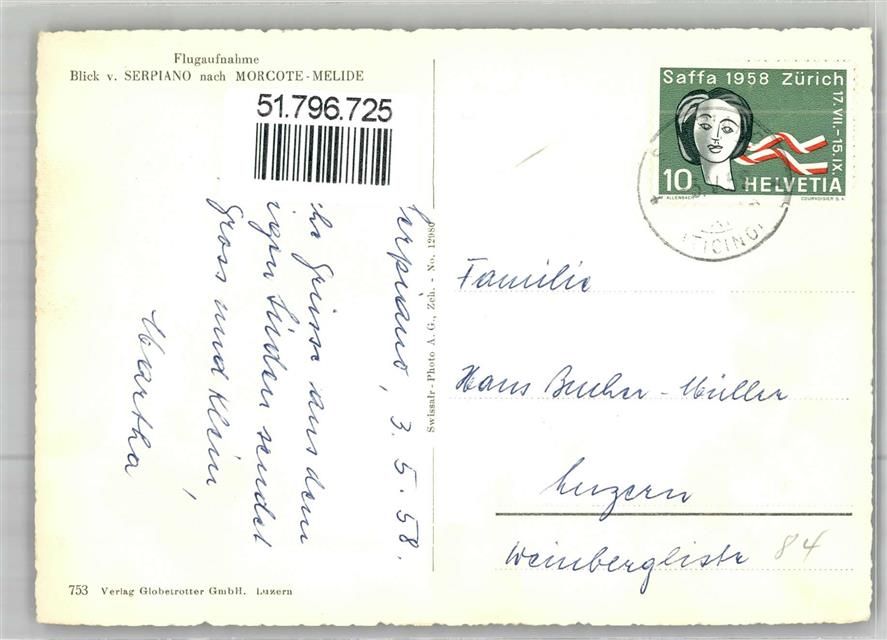 Flugaufnahme
Blick v. SERPIANO nach MORCOTE-MELIDE
51.796.725
Serpiano, 3.5.58.
Grüsse aus dem
Süden sendet
Gross und Klein,
Martha
Swissair-Photo A.G., Zch. - No. 12980
753 Verlag Globetrotter GmbH. Luzern
Saffa 1958 Zürich
17.VII.-15.IX.
10 HELVETIA
ALLENBACH
COURVOISIER S.A.
(TICINO)
Familie
Hans Bucher-Müller
Luzern
Weinberglistr 84